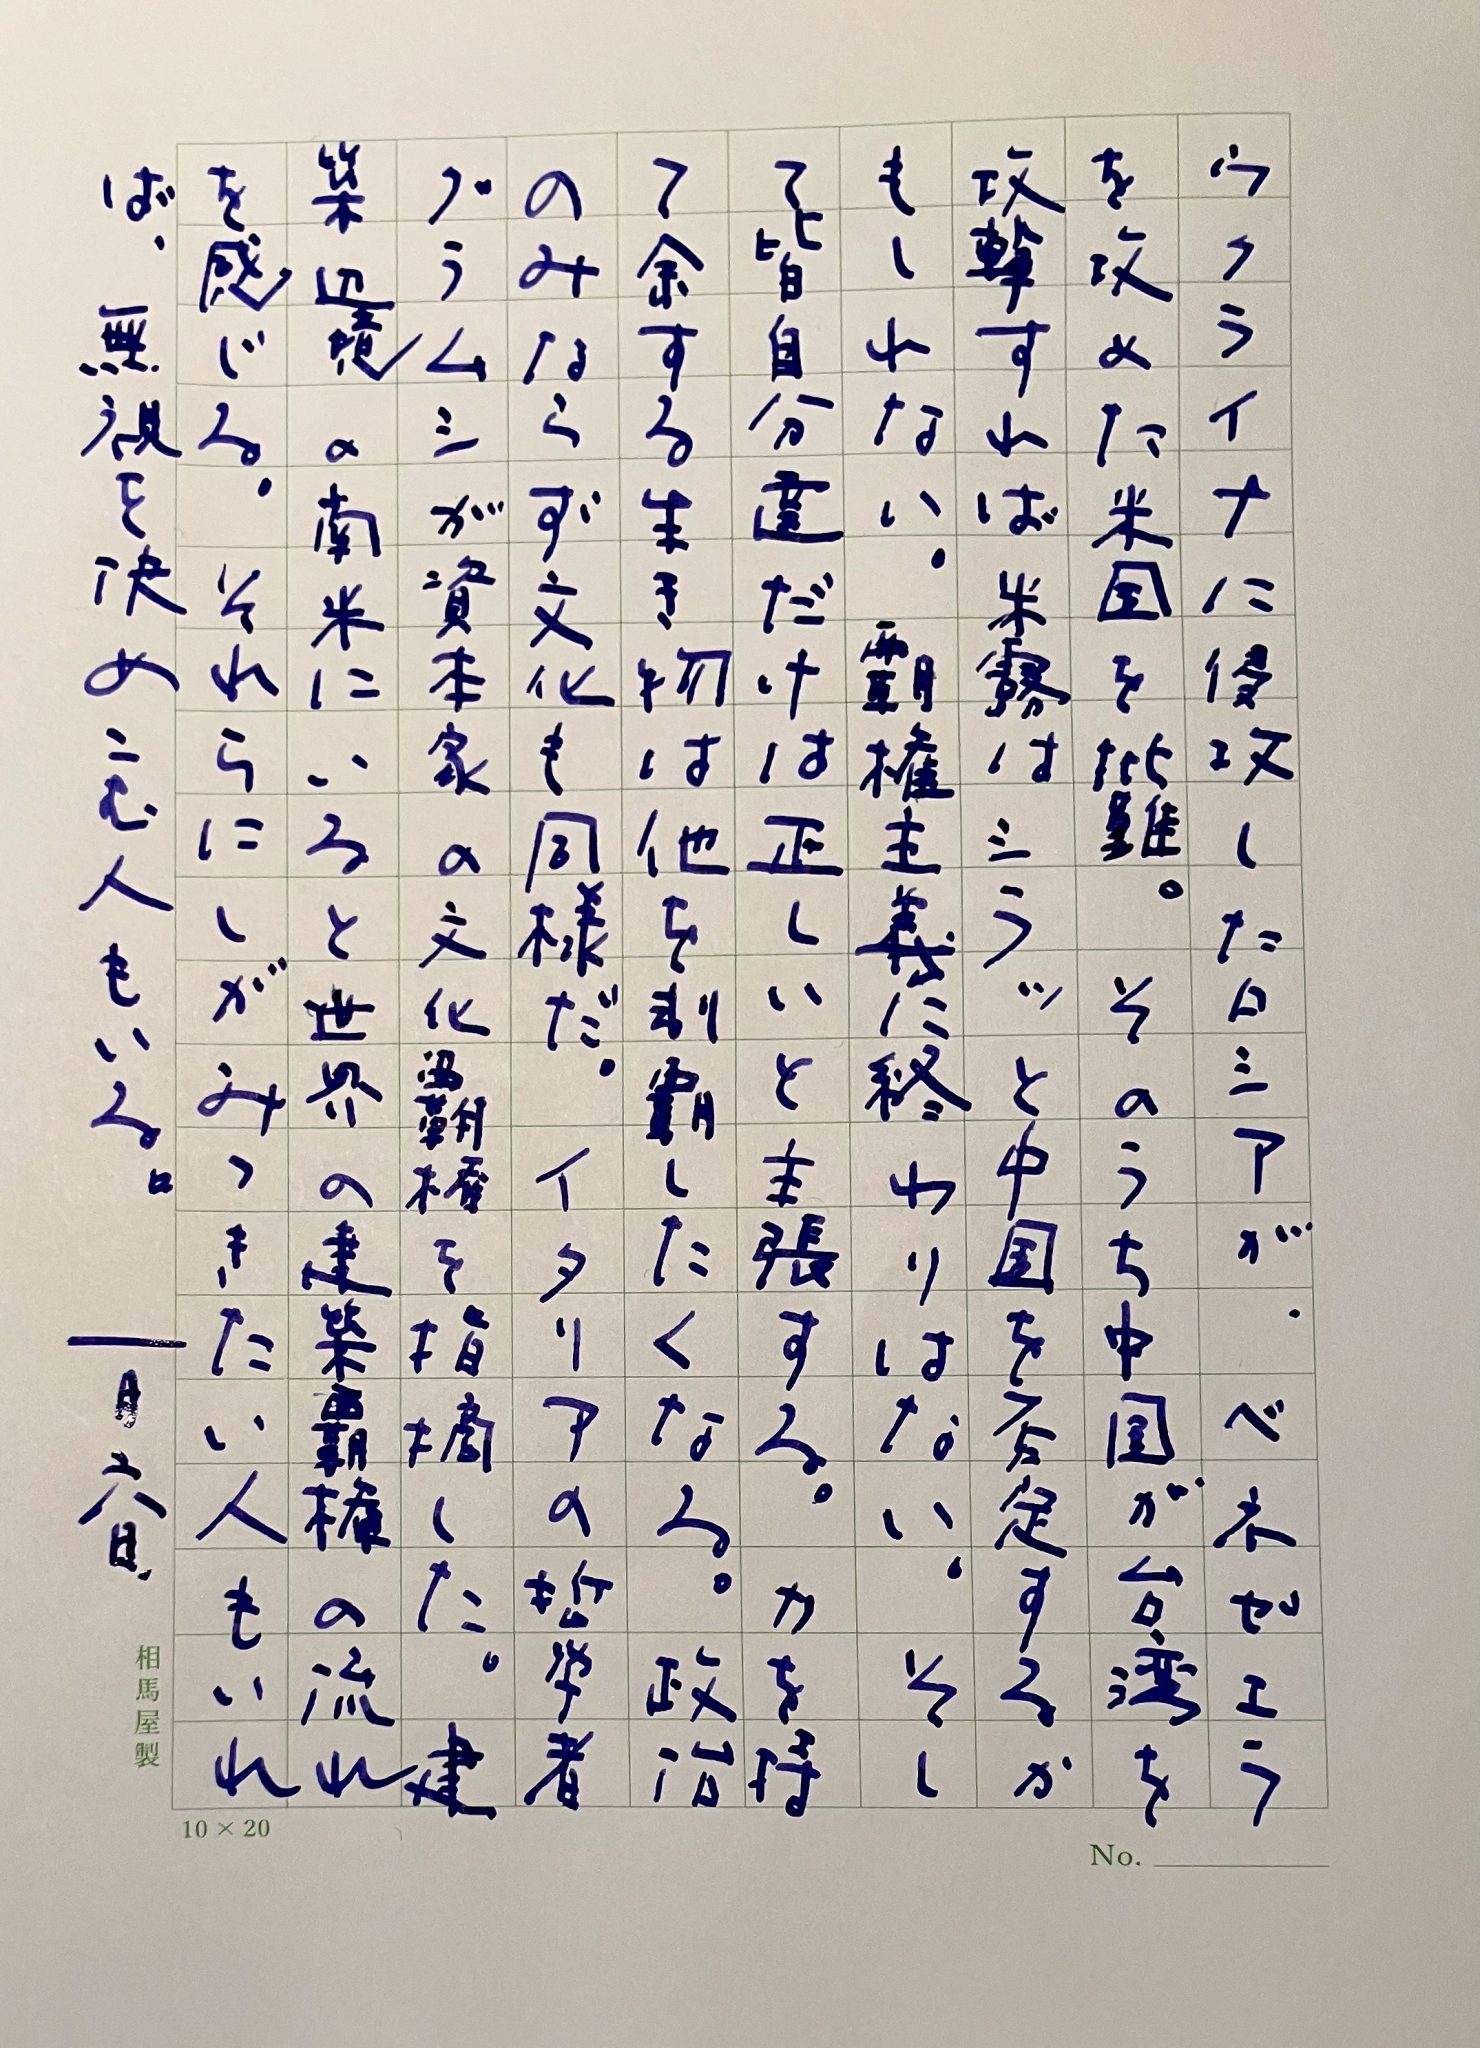 ウクライナに侵攻したロシアが、ベネゼエラ
を攻めた米国を批難。そのうち中国が台湾を
攻撃すれば米露はシラッと中国を否定するか
もしれない。覇権主義に終わりはない。そし
て皆自分達だけは正しいと主張する。力を持
て余する生き物は他を制覇したくなる。政治
のみならず文化も同様だ。イタリアの哲学者
グラムシが資本家の文化覇権を指摘した。建
築辺境の南米にいると世界の建築覇権の流れ
を感じる。それらにしがみつきたい人もいれ
ば、無視を決めこむ人もいる。 一月六日
相馬屋製
10×20
No.